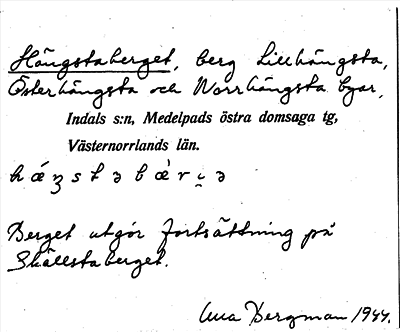 Hängstaberget, berg Lillhängsta,
Österhängsta och Norrhängsta byar,
Indals s:n, Medelpads östra domsaga tg,
Västernorrlands län.
Berget utgör fortsättning på
Skällstaberget.
Anna Bergman 1944.